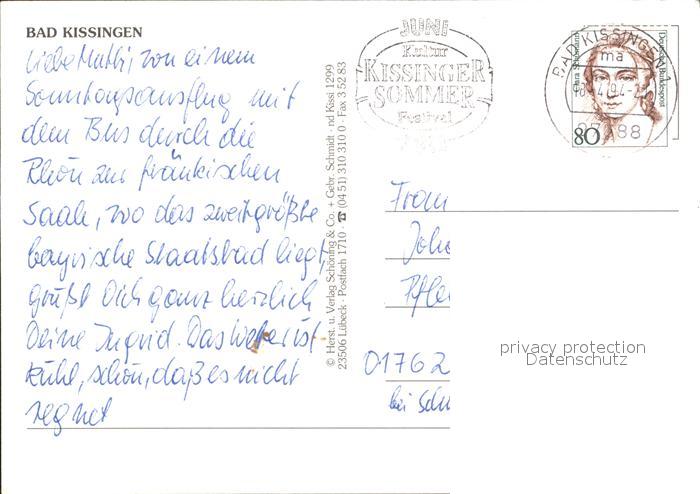 BAD KISSINGEN
Liebe Mutti, von einem
Sonntagsausflug mit
dem Bus durch die
Rhön zur fränkischen
Saale, wo das zweitgrößte
bayrische Staatsbad liegt,
grüßt Dich ganz herzlich
Deine Ingrid. Das Wetter ist
kühl, schön, daß es nicht
regnet
© Herst. u. Verlag Schöning & Co. + Gebr. Schmidt · nd Kissi 1299
23506 Lübeck · Postfach 1710 · ☎ (04 51) 310 310 0 · Fax 3 52 83
JUNI
Kultur
KISSINGER
SOMMER
Festival
JULI
BAD KISSINGEN
ma
97688
Clara Schumann
Deutsche Bundespost
80
Frau
Joh
01762
bei Sch
privacy protection
Datenschutz